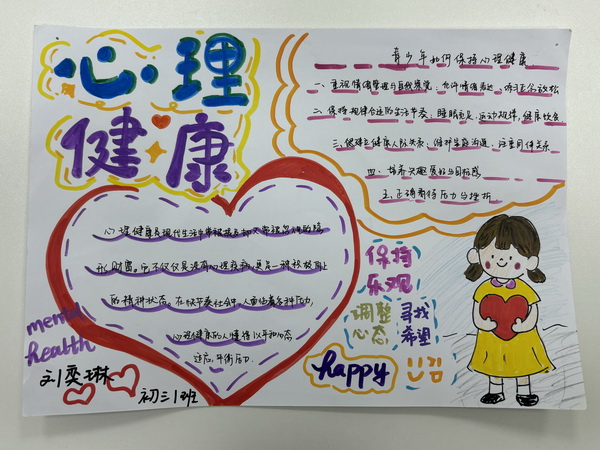 心理
健康
青少年如何保持心理健康
一、重视情绪管理与自我觉察：允许情绪表达，学习充分放松
二、保持规律合适的生活节奏：睡眠充足，运动规律，健康饮食
三、促建立健康人际关系：保持家庭沟通，注重同伴关系
四、培养兴趣爱好与目标感
五、正确看待压力与挫折
心理健康是现代生活中常被提及却又常被忽视的隐
形财富。它不仅仅是没有心理疾病，更是一种积极向上
的精神状态。在快节奏社会中，人面临着各种压力，
心理健康的人懂得以平和心态
适应，平衡压力。
保持
乐观
调整
心态
寻找
希望
mental
health
happy
刘奕琳
初三1班